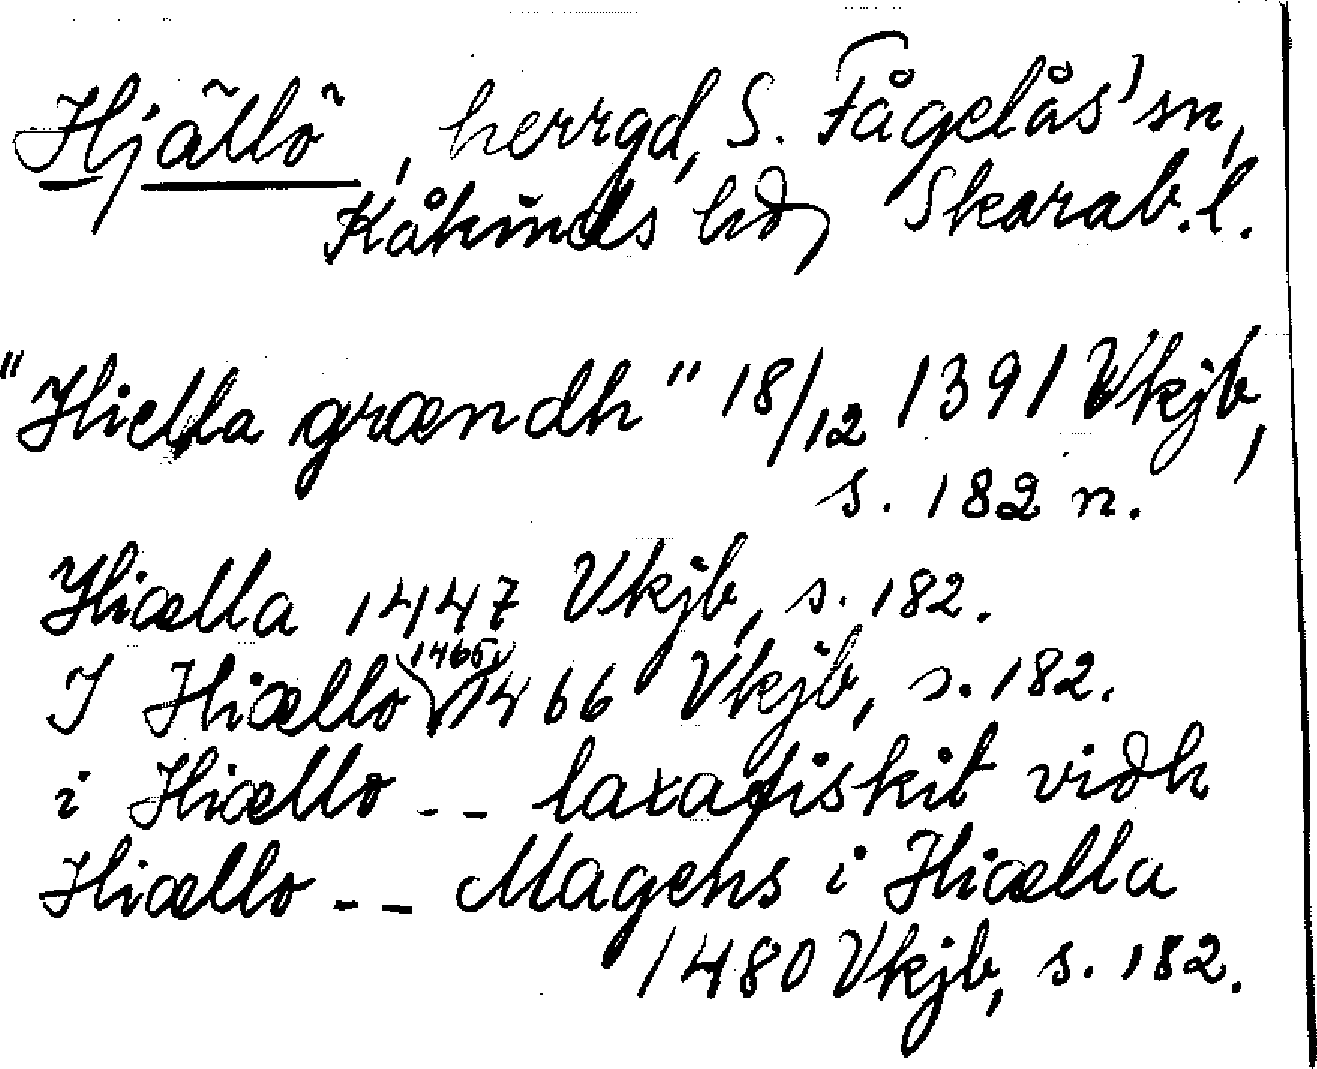 Hjällö, herrgd, S. Fågelås sn,
Kåkinds hd, Skarab. l.
"Hiella grændh" 18/12 1391 Vkjb,
s. 182 n.
Hiælla 1447 Vkjb, s. 182.
I Hiællo 1465, 1466 Vkjb, s. 182.
i Hiællo -- laxafiskit vidh
Hiællo -- Magens i Hiælla
1480 Vkjb, s. 182.